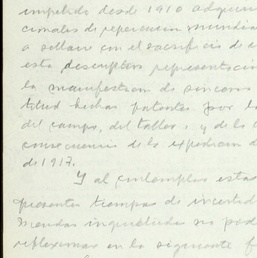 impelido desde 1910 adquiri
cionales de repercusion mundia
a sellar con el sacrificio de
esta representacion
la manifestacion de sincera
titud hechas patentes por l
del campo, del taller, y de la
consecuencia de la expedicion d
de 1917.
Y al contemplar esta
presentes tiempos de incertid
inquietud no pod
reflexionar en la siguiente f